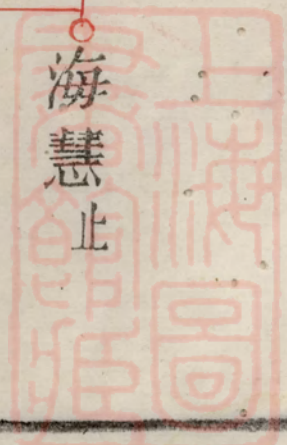 海慧止
上海圖
書館藏